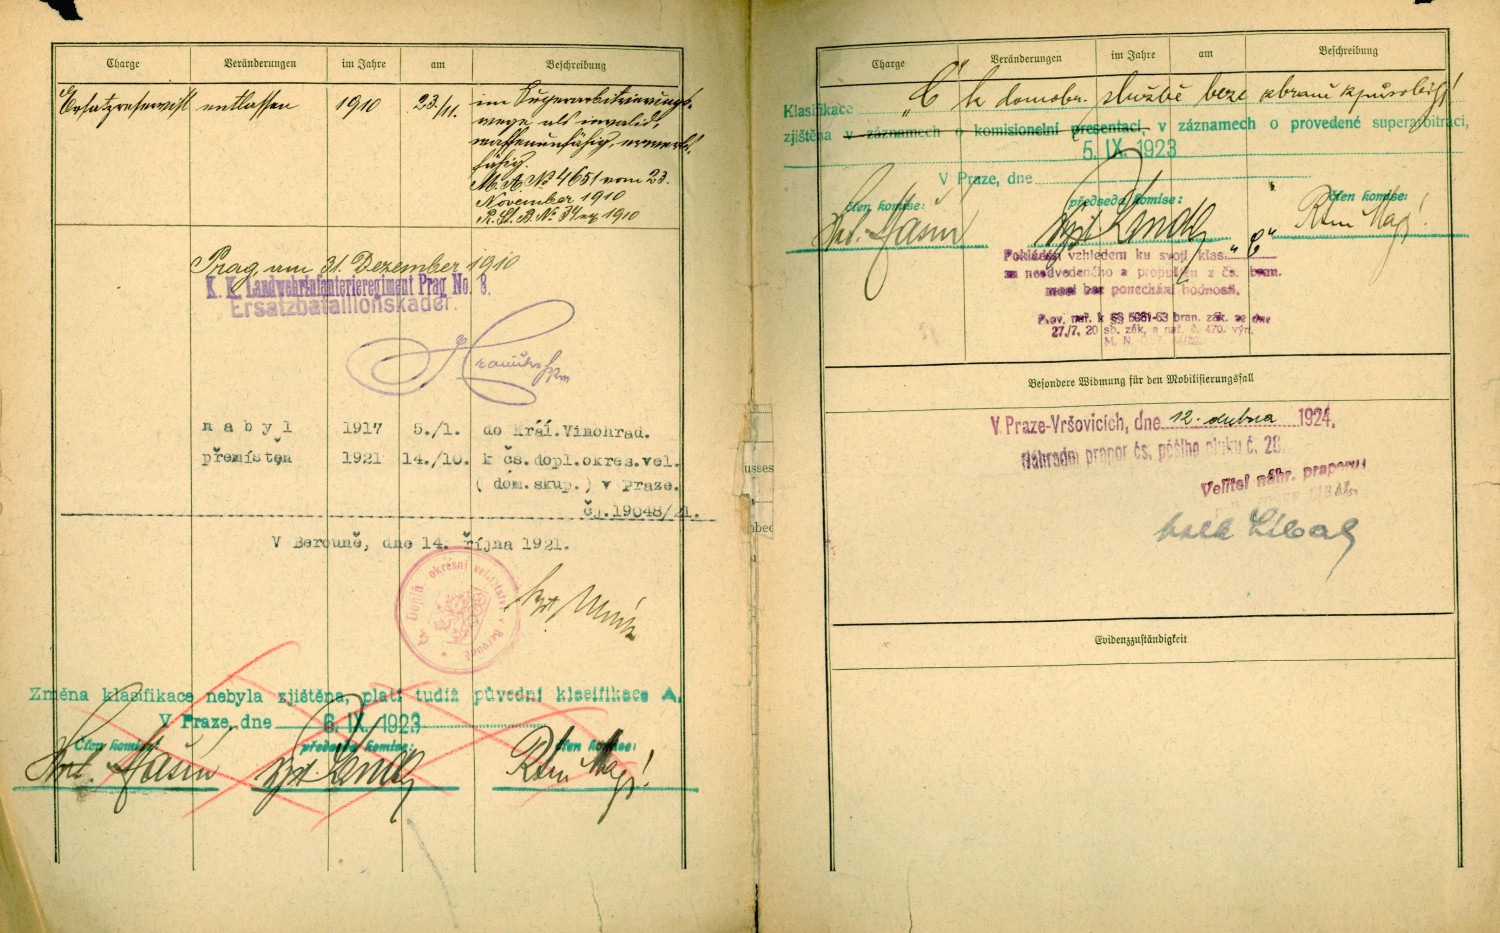 Charge Veränderungen im Jahre am Beschreibung
Ersatzreservist entlassen 1910 23./11. im Superarbitrierungs-
wege als invalid,
waffenunfähig, erwerbs-
fähig.
M. A. No 4651 vom 23.
November 1910
1910
Prag, am 31. Dezember 1910
K. K. Landwehrinfanterieregiment Prag No. 8.
Ersatzbataillonskader.
nabyl 1917 5./1. do Král.Vinohrad.
přemístěn 1921 14./10. k čs.dopl.okres.vel.
(dom.skup.) v Praze.
čj.19048/21.
V Berouně, dne 14. října 1921.
Dopln. okresní velitelství v Berouně
Změna klasifikace nebyla zjištěna, platí tudíž původní klasifikace A.
V Praze, dne 6. IX. 1923
Člen komise: předseda komise: člen komise:
Charge Veränderungen im Jahre am Beschreibung
Klasifikace „C k domobr. službě beze zbraně způsobilý!
zjištěna v záznamech o komisionelní presentaci, v záznamech o provedené superarbitraci,
5. IX. 1923
V Praze, dne
člen komise: předseda komise: člen komise:
Pokládán vzhledem ku svojí klas. „C“
za neodvedeného a propuštěn z čs. bran.
moci bez ponechání hodnosti.
Prov. nař. k §§ 61-63 bran. zák. ze dne
27./7. 20 sb. zák. a nař. č. 470. výn.
M. N. O.
Besondere Widmung für den Mobilisierungsfall
V Praze-Vršovicích, dne 12. dubna 1924.
Náhradní prapor čs. pěšího pluku č. 28.
Velitel náhr. praporu:
Evidenzzuständigkeit